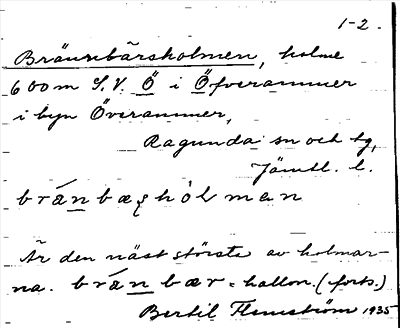 1-2.
Brännbärsholmen, holme
600 m S.V. Ö i Öfverammer
i byn Överammer,
Ragunda sn och tg,
Jämtl. l.
bránbæʂhòlman
Är den näst största av holmar-
na. bránbær = hallon. (forts.)
Bertil Flemström 1935